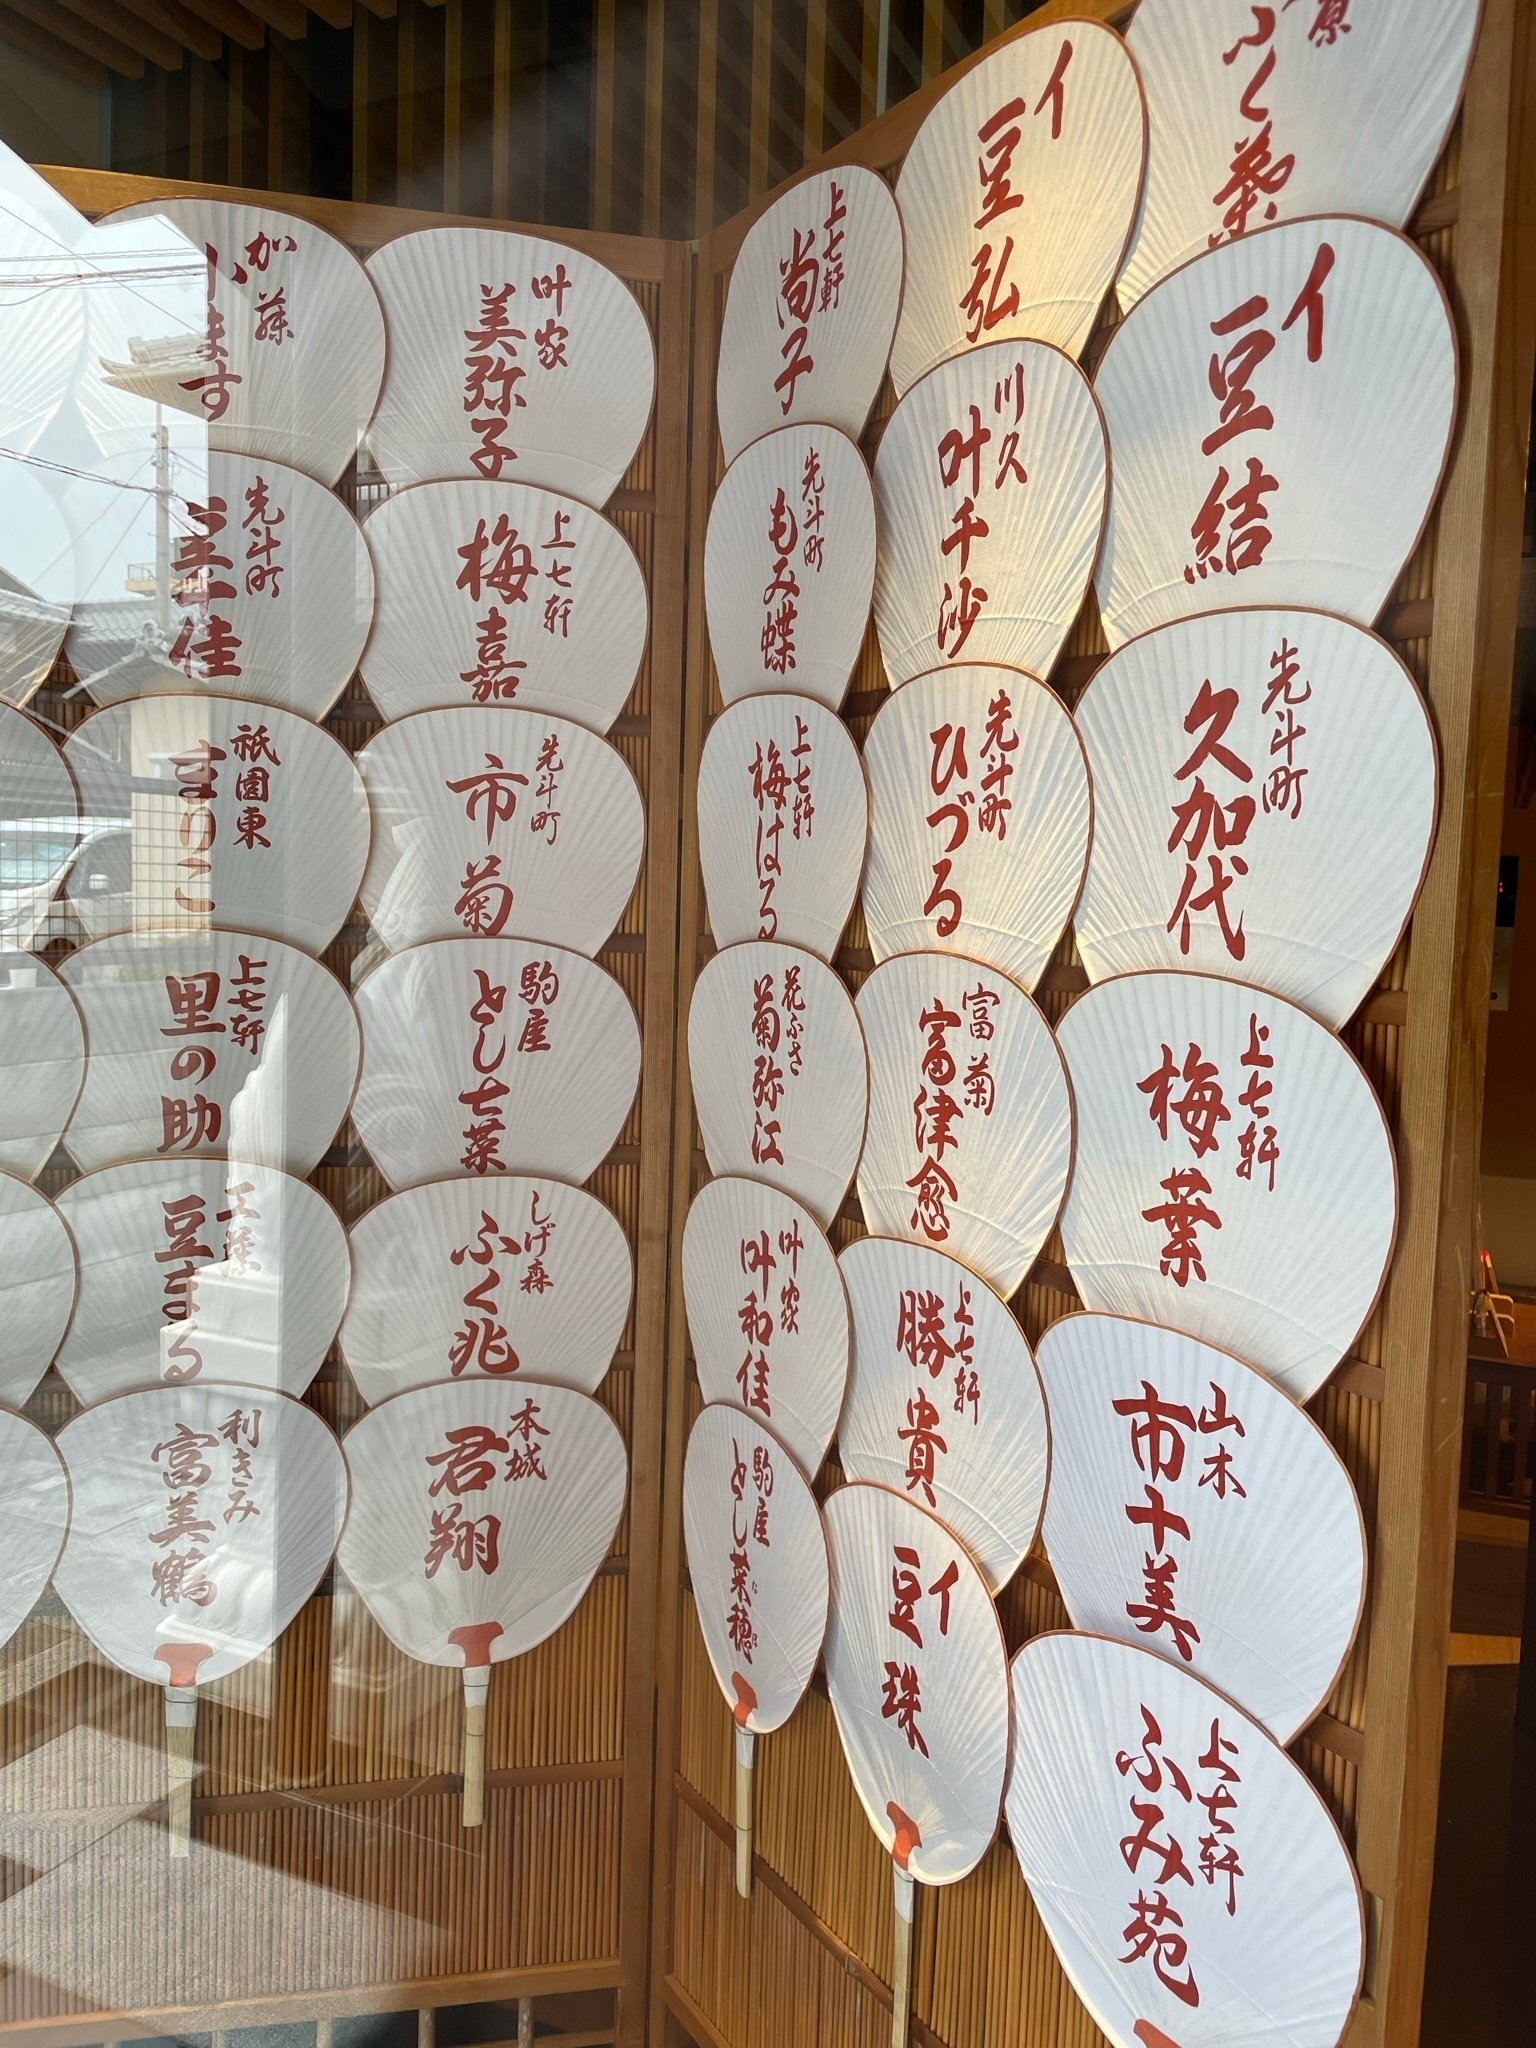 加藤
小ます
叶家
美弥子
先斗町
祇園東
まりこ
上七軒
里の助
豆まる
利きみ
富美鶴
上七軒
梅嘉
先斗町
市菊
駒屋
とし七菜
しげ森
ふく兆
本城
君翔
上七軒
尚子
先斗町
もみ蝶
上七軒
梅はる
花ふさ
菊弥江
叶家
叶和佳
駒屋
とし菜穂
イ
豆弘
川久
叶千沙
先斗町
ひづる
富菊
富津愈
上七軒
勝貴
イ
豆珠
ふく葵
イ
豆結
先斗町
久加代
上七軒
梅葉
山木
市十美
上七軒
ふみ苑